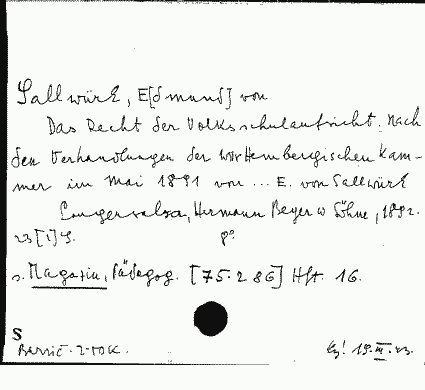 Sallwürk, E[dmund] von
Das Recht der Volksschulaufsicht. Nach
den Verhandlungen der württembergischen Kam-
mer im Mai 1891 von ... E. von Sallwürk
Langensalza, Hermann Beyer u Söhne, 1892.
23 [1] S. 8º
s. Magazin, Pädagog. [75.286] Hft. 16.
S